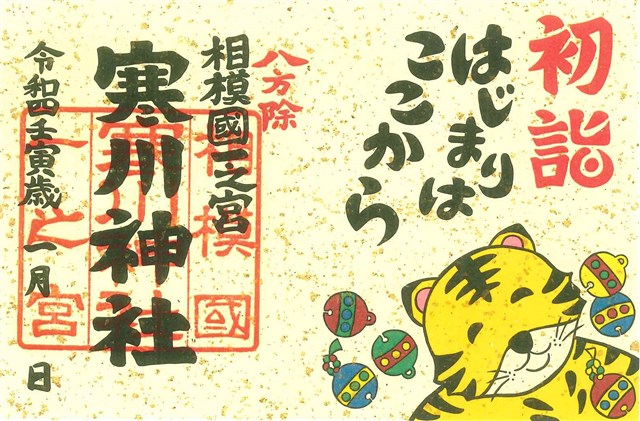 初詣
はじまりは
ここから
八方除
相模國一之宮
寒川神社
令和四壬寅歳 一月 日
相模國
寒川神社
一之宮